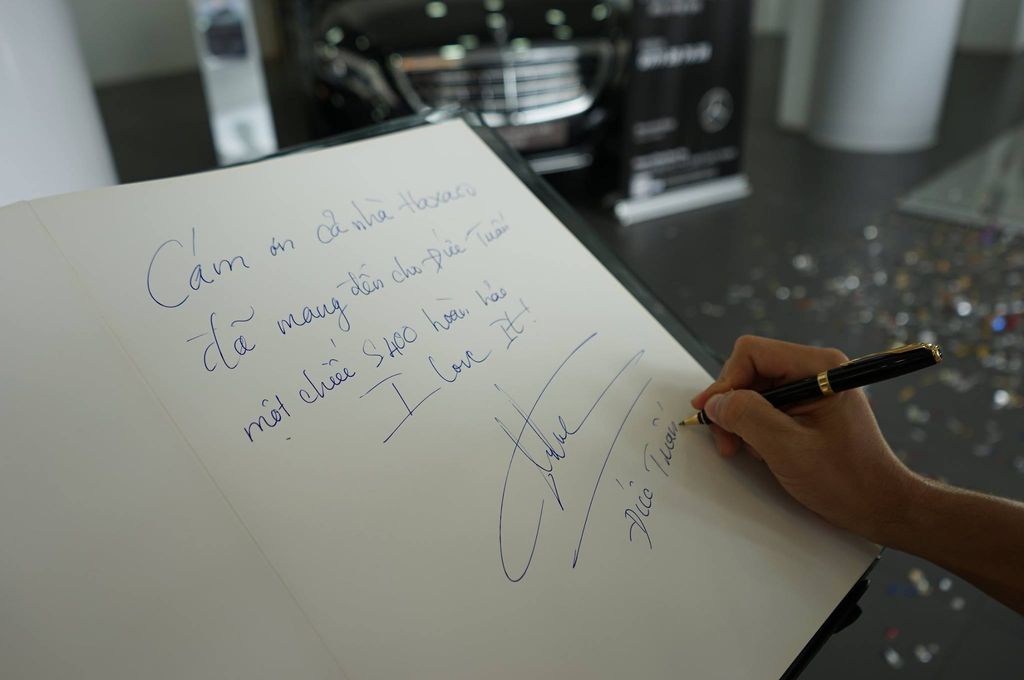 Cám ơn cả nhà Haxaco
đã mang đến cho Đức Tuấn
một chiếc S400 hoàn hảo
I love It!
Đức Tuấn